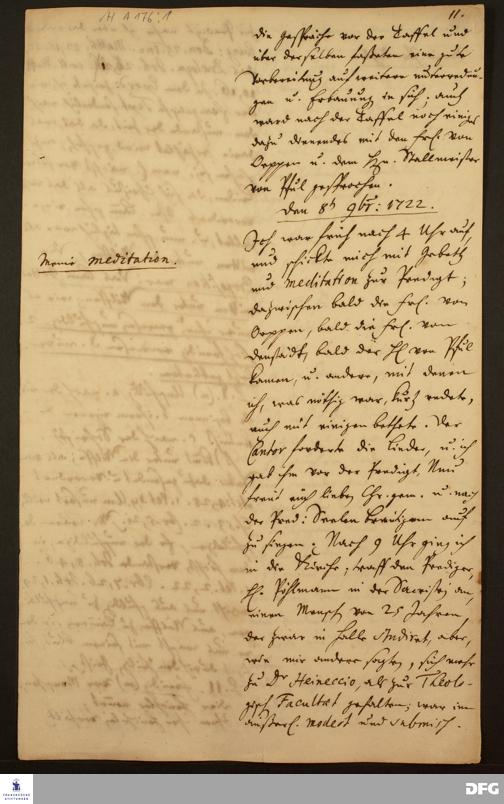 H A 176 : 1
11.
die gespräche vor der Taffel und
über derselben fasseten eine gute
Vorbereitung auf weitere unterredun-
gen u. Erbauung in sich; auch
ward nach der Taffel noch einiges
dazu dienendes mit den frl. von
Oeppen u. dem Hn. Stallmeister
von Pful gesprochen.
den 8t 9br: 1722.
Ich war früh nach 4 Uhr auf,
und schickte mich mit Gebeth
Meine meditation.
und meditation zur Predigt;
dazwischen bald die frl. von
Oeppen, bald die frl. von
Denstädt, bald der H. von Pful
kamen, u. andere, mit denen
ich, was nöthig war, kurtz redete,
auch mit einigen bethete. Der
Cantor forderte die Lieder, u. ich
gab ihm vor der Predigt, Nun
freut euch lieben Chr. gem. u. nach
der Pred: Seelen Bräutigam auf
zu singen. Nach 9 Uhr ging ich
in die Kirche, traff den Prediger,
H. Pöhlmann in der Sacristey an,
einen Mensch von 25 Jahren,
der zwar in Halle studiret, aber,
wie mir andere sagten, sich mehr
zu Dr Heineccio, als zur Theolo-
gisch Facultät gehalten; war im
äußerl. modest und submiss.
FRANCKESCHE STIFTUNGEN
DFG